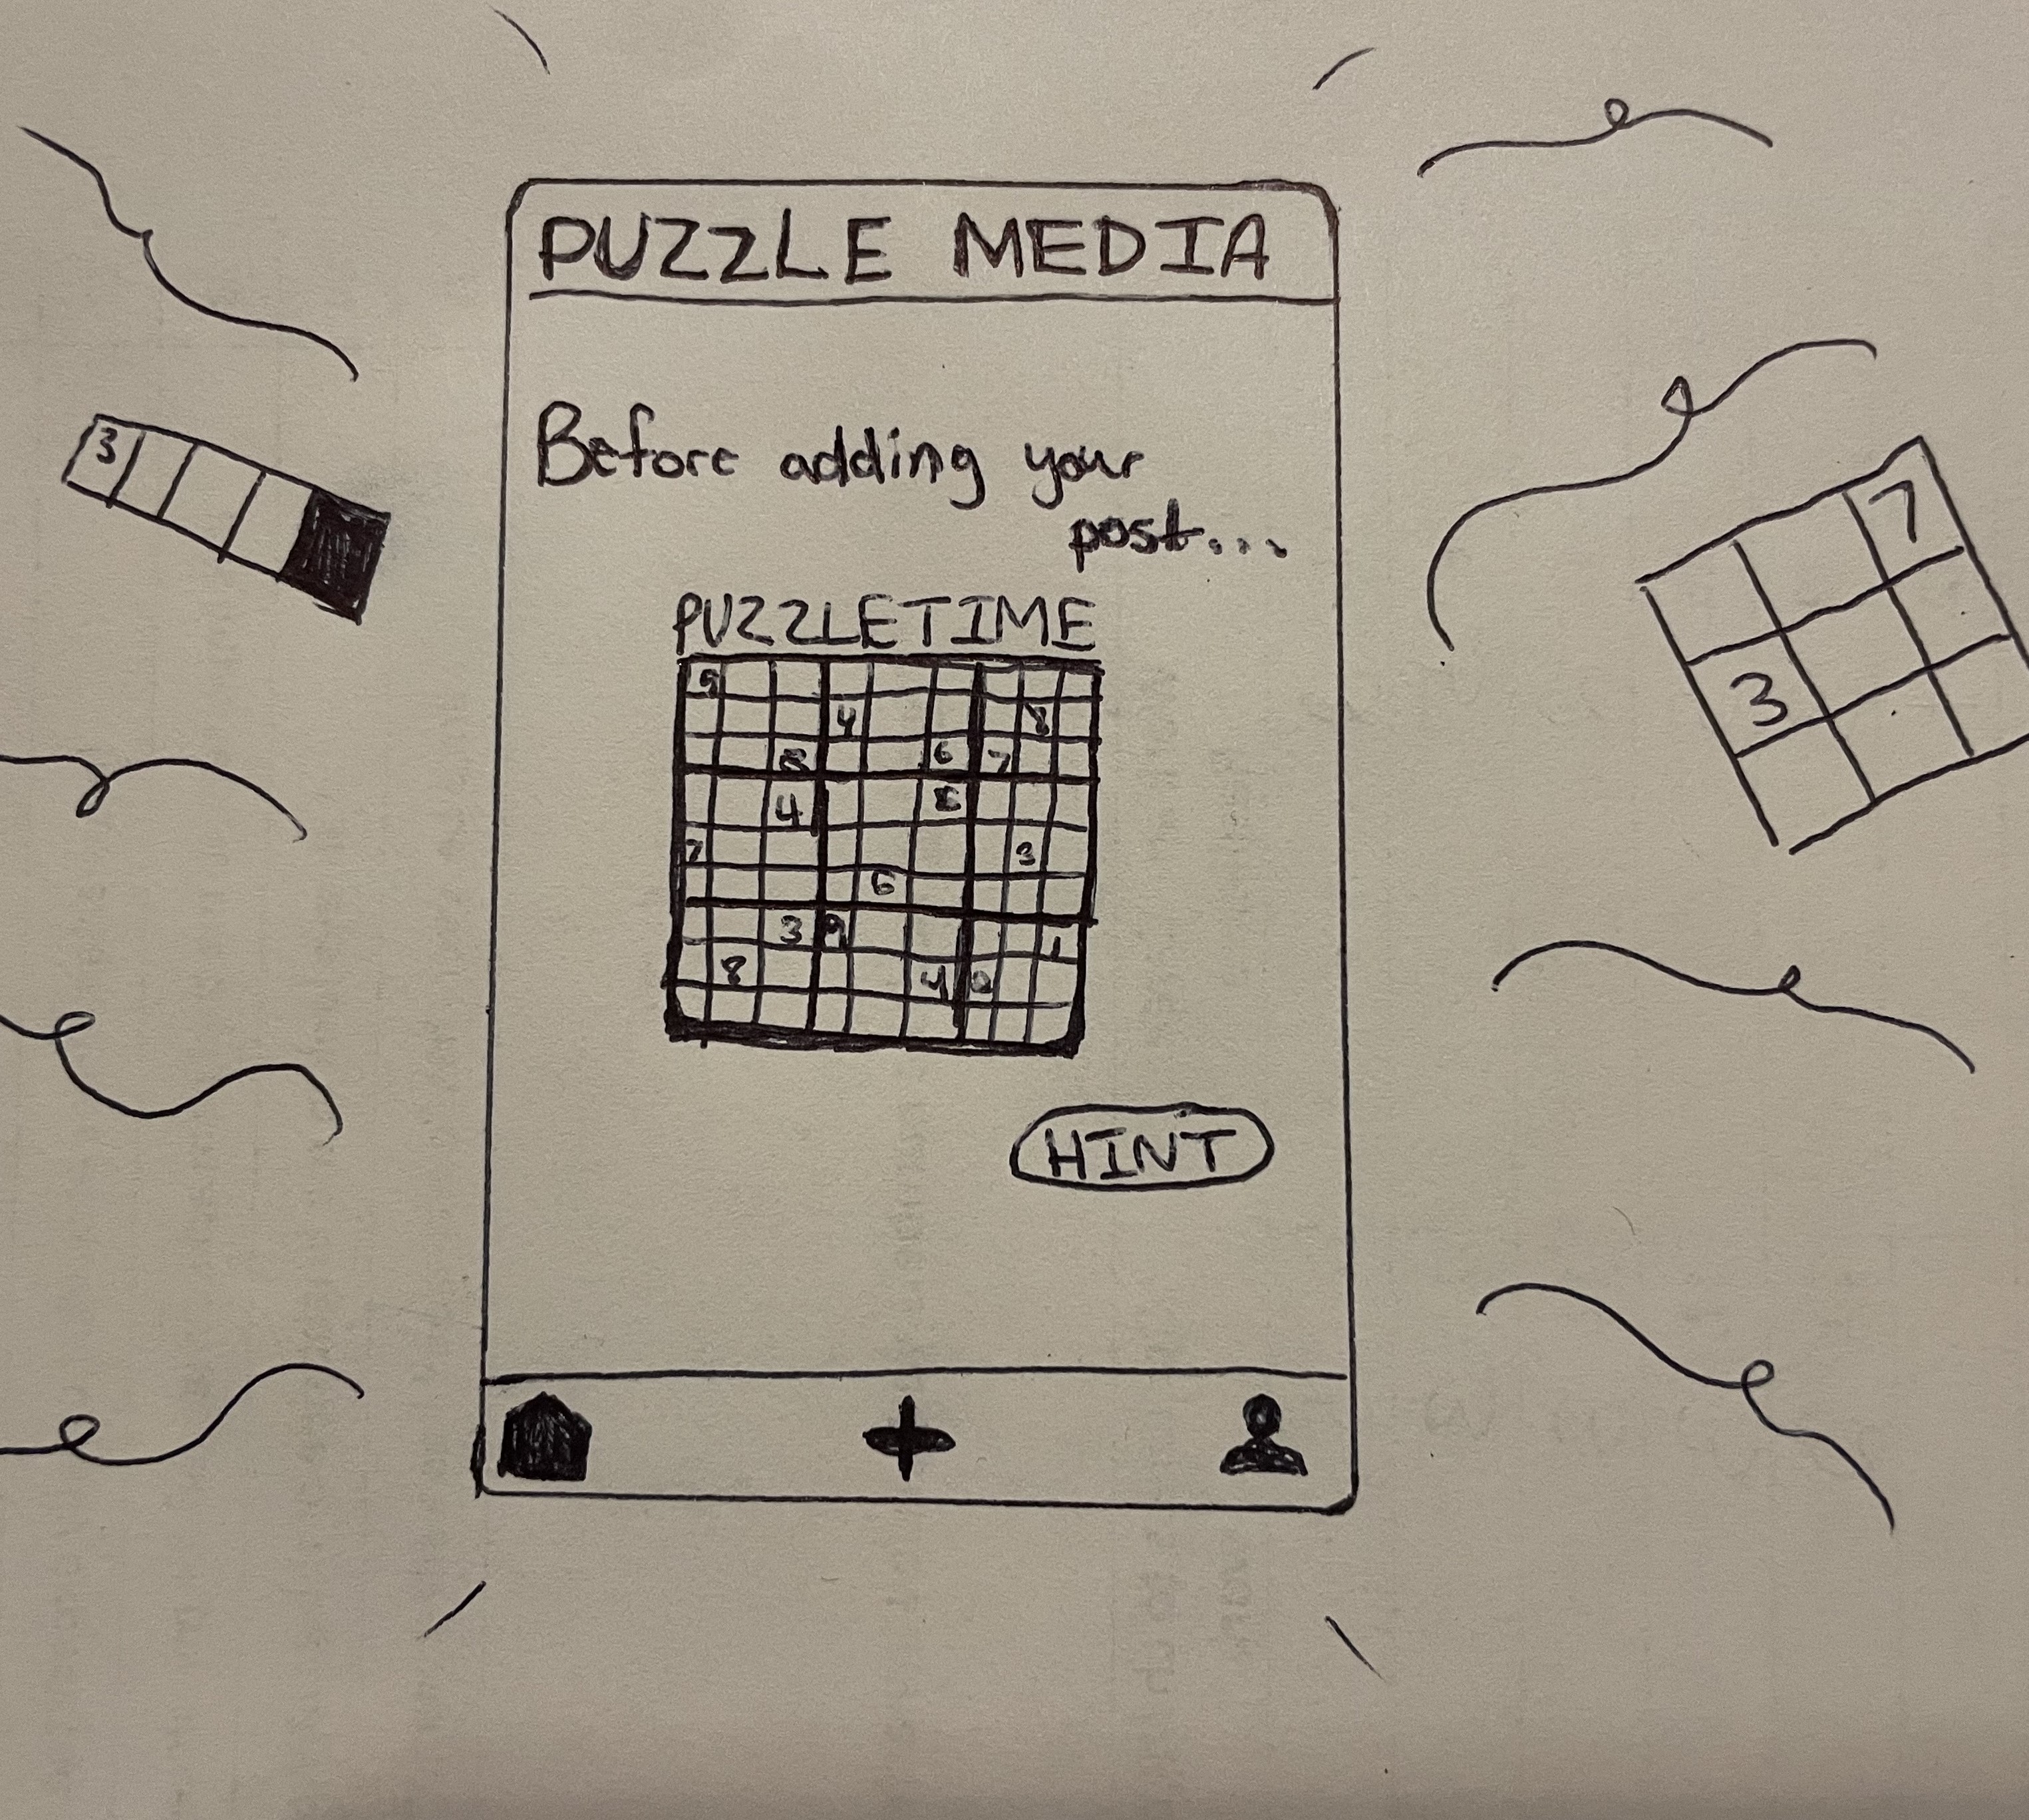 PUZZLE MEDIA
Before adding your
post...
PUZZLETIME
9
4 8
8 6 7
4 8
7 3
6
3 9 1
8 4
HINT
3
7
3